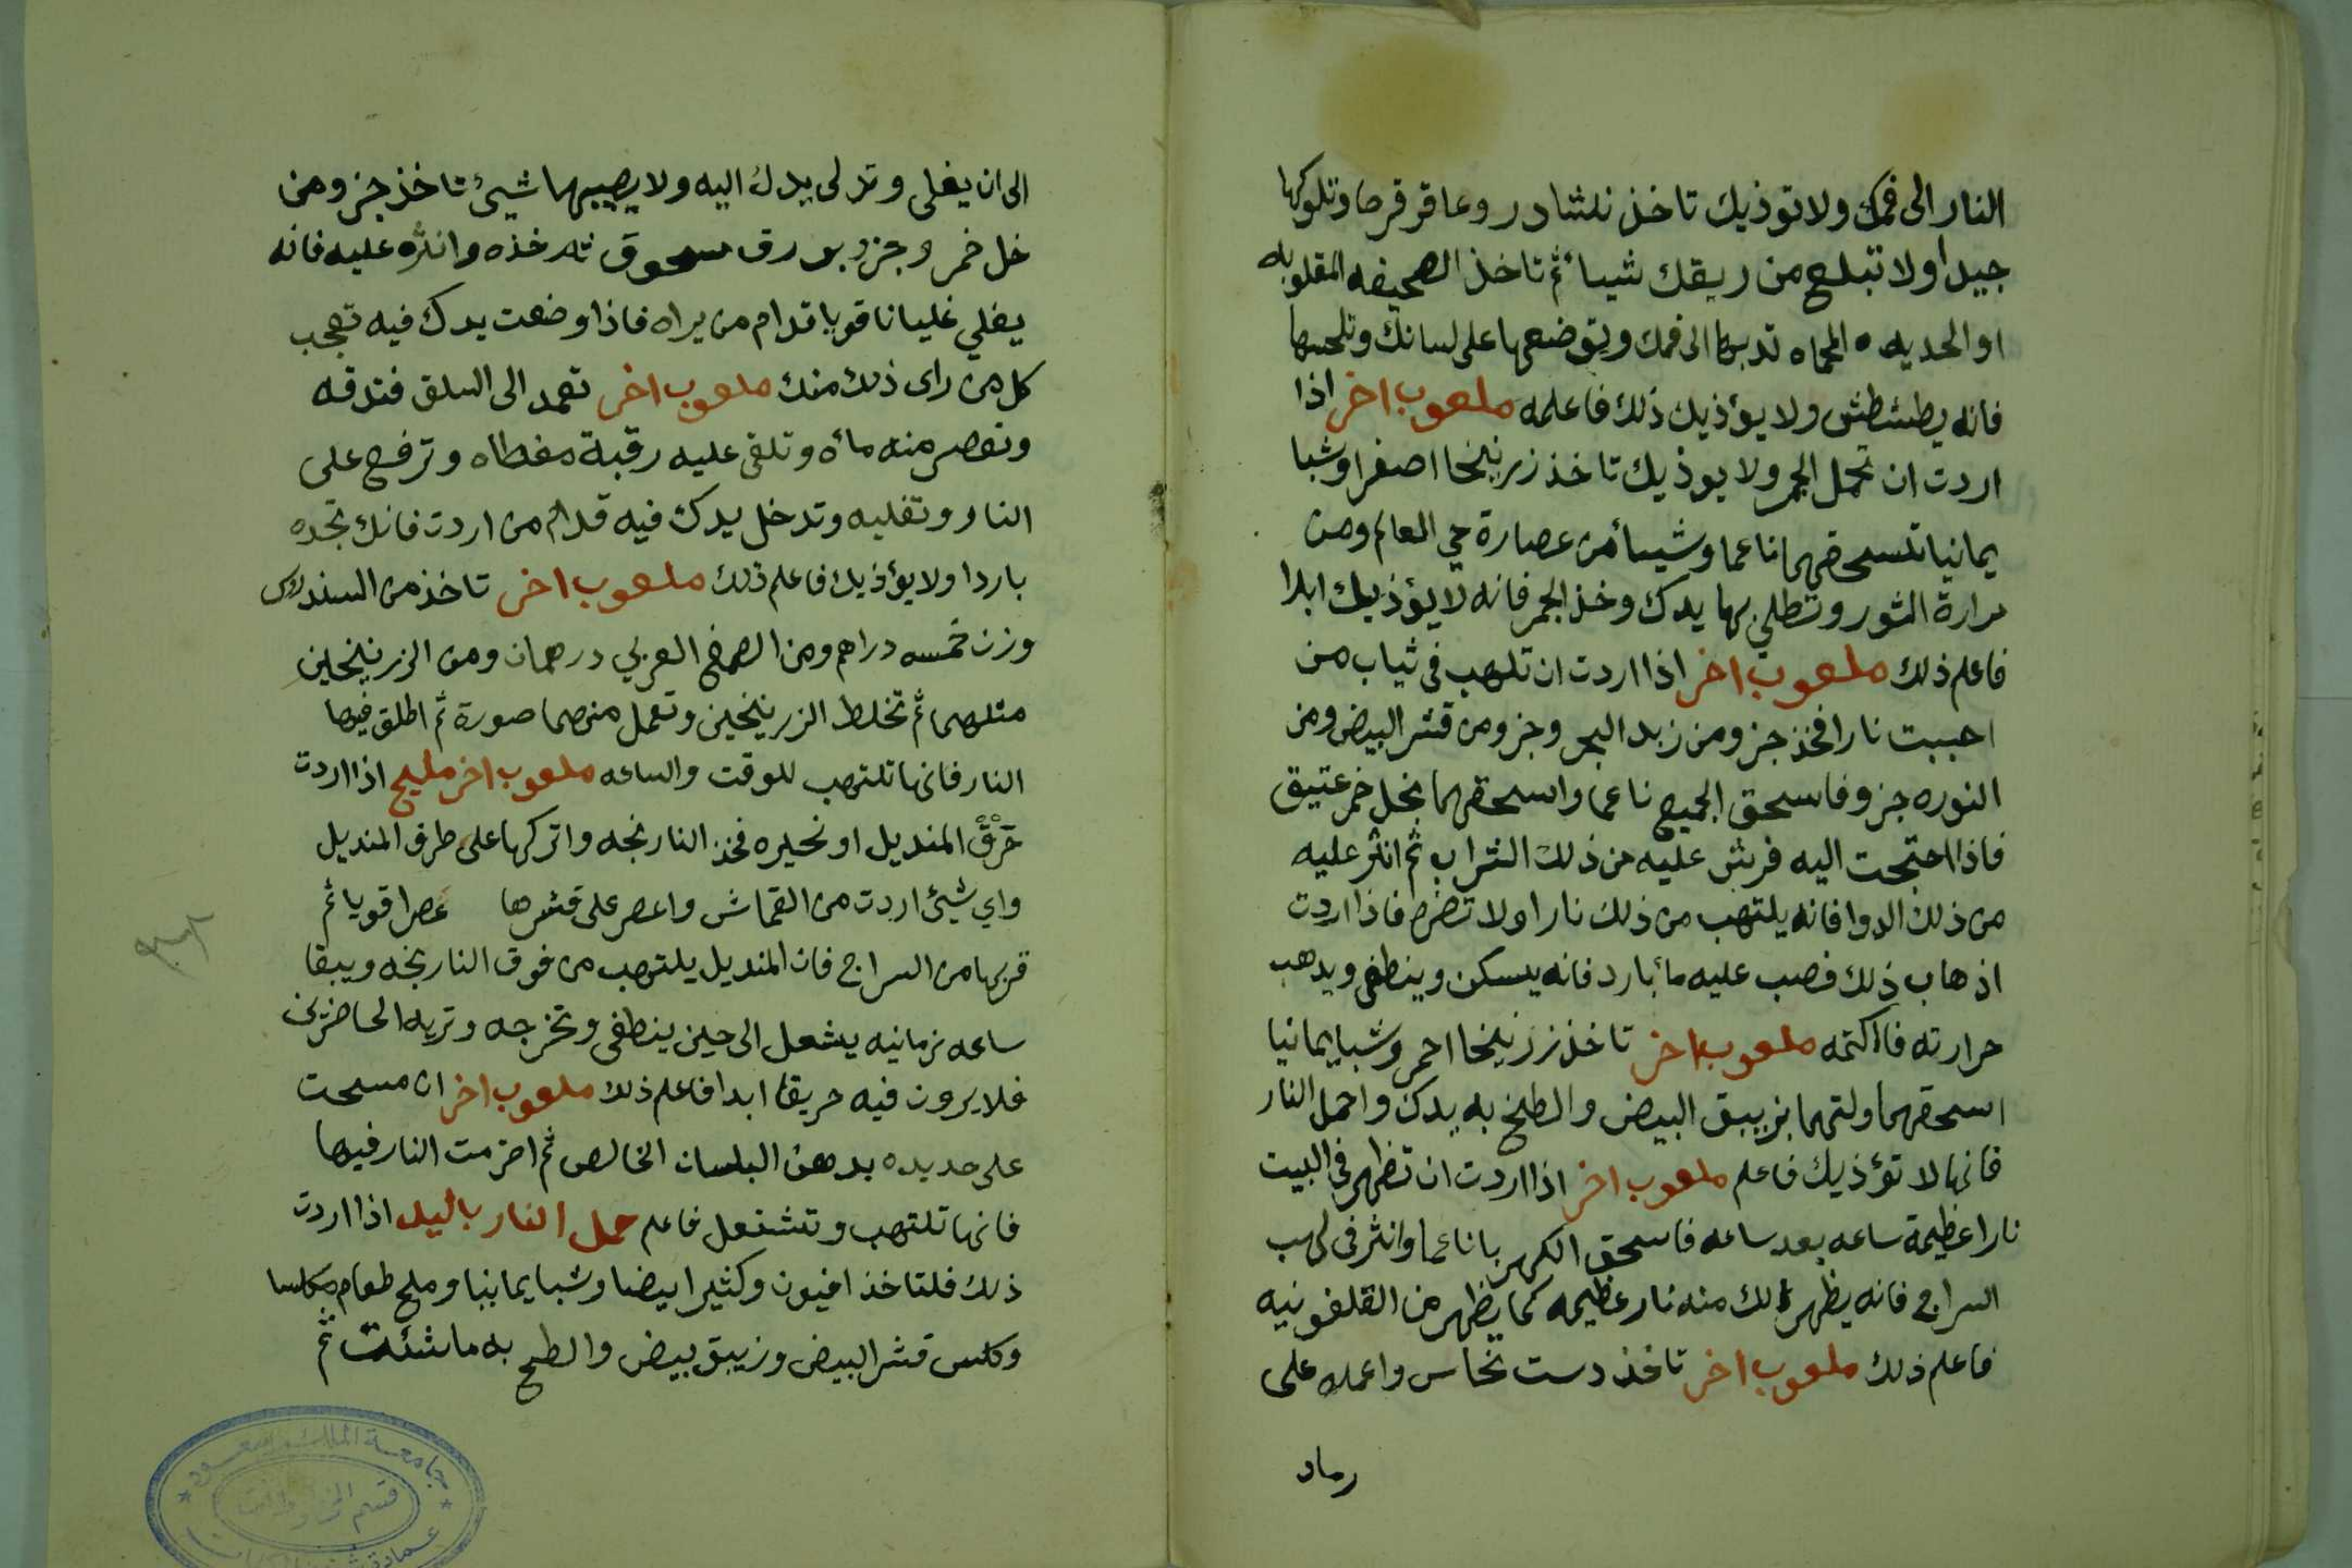 النار الى فمك ولا توذيك تاخذ نلشادر وعاقر قرحا وتلوكها
جيدا ولا تبلع من ريقك شيأ ثم تاخذ الصحيفه المقلوبه
او الحديده المحماه تدنيها الى فمك وتوضعها على لسانك وتلحسها
فانه يطشطش ولا يؤذيك ذلك فاعلمه ملعوب اخر اذا
اردت ان تحمل الجمر ولا يوذيك تاخذ زرنيخا اصفر اوشبا
يمانيا تسحقهما ناعما وشيأ من عصارة حي العالم ومن
مرارة الثور وتطلي بها يدك وخذ الجمر فانه لا يؤذيك ابدا
فاعلم ذلك ملعوب اخر اذا اردت ان تلهب في ثياب من
احببت نارا فخذ جزو من زبد البحر وجزو من قشر البيض ومن
النوره جزو فاسحق الجميع ناعما واسحقهما بخل خمر عتيق
فاذا احتجت اليه فرش عليه من ذلك الشراب ثم انثر عليه
من ذلك الدوا فانه يلتهب من ذلك نارا ولا تضره فاذا اردت
اذهاب ذلك فصب عليه مأ بارد فانه يسكن وينطفى ويدهب
حرارته فاكتمه ملعوب اخر تاخذ زرنيخا احمر وشبا يمانيا
اسحقهما ولتهما بزيبق البيض والطخ به يدك واحمل النار
فانها لا تؤذيك فاعلم ملعوب اخر اذا اردت ان تظهر في البيت
نارا عظيمة ساعه بعد ساعه فاسحق الكهربا ناعما وانثر في لهب
السراج فانه يظهر لك منه نار عظيمه كما يظهر من القلفونيه
فاعلم ذلك ملعوب اخر تاخذ دست نحاس واعمله على
رماد
الى ان يغلى وتدلى يدك اليه ولا يصيبها شيئ تاخذ جزو من
خل خمر وجزو بورق مسحوق خذه وانثره عليه فانه
يغلي غليانا قويا قدام من يراه فاذا وضعت يدك فيه تعجب
كل من راى ذلك منك ملعوب اخر تعمد الى السلق فتدقه
وتعصر منه مأه وتلقى عليه رقبة مغطاه وترفع على
النار وتغليه وتدخل يدك فيه قدام من اردت فانك تجده
باردا ولا يؤذيك فاعلم ذلك ملعوب اخر تاخذ من السندلوس
وزن خمسه دراهم ومن الصمغ العربي درهمان ومن الزرنيخين
مثلهما ثم تخلط الزرنيخين وتعمل منهما صورة ثم اطلق فيها
النار فانها تلتهب للوقت والساعه ملعوب اخر مليح اذا اردت
حرق المنديل او نحيره فخذ النارنجه واتركها على طرف المنديل
واي شيئ اردت من القماش واعصر على قشرها عصرا قويا ثم
قربها من السراج فان المنديل يلتهب من فوق النارنجه ويبقا
ساعه زمانيه يشعل الى حين ينطفى وتخرجه وتريه الحاضرين
فلا يرون فيه حريقا ابدا فاعلم ذلك ملعوب اخر ان مسحت
على حديده بدهن البلسان الخالص ثم اضرمت النار فيها
فانها تلتهب وتشتعل فاعلم حمل النار باليد اذا اردت
ذلك فلتاخذ افيون وكثيرا بيضا وشبا يمانيا وملح طعام مكلسا
وكلس قشر البيض وزيبق بيض والطخ به ما شئت ثم
جامعة الملك سعود